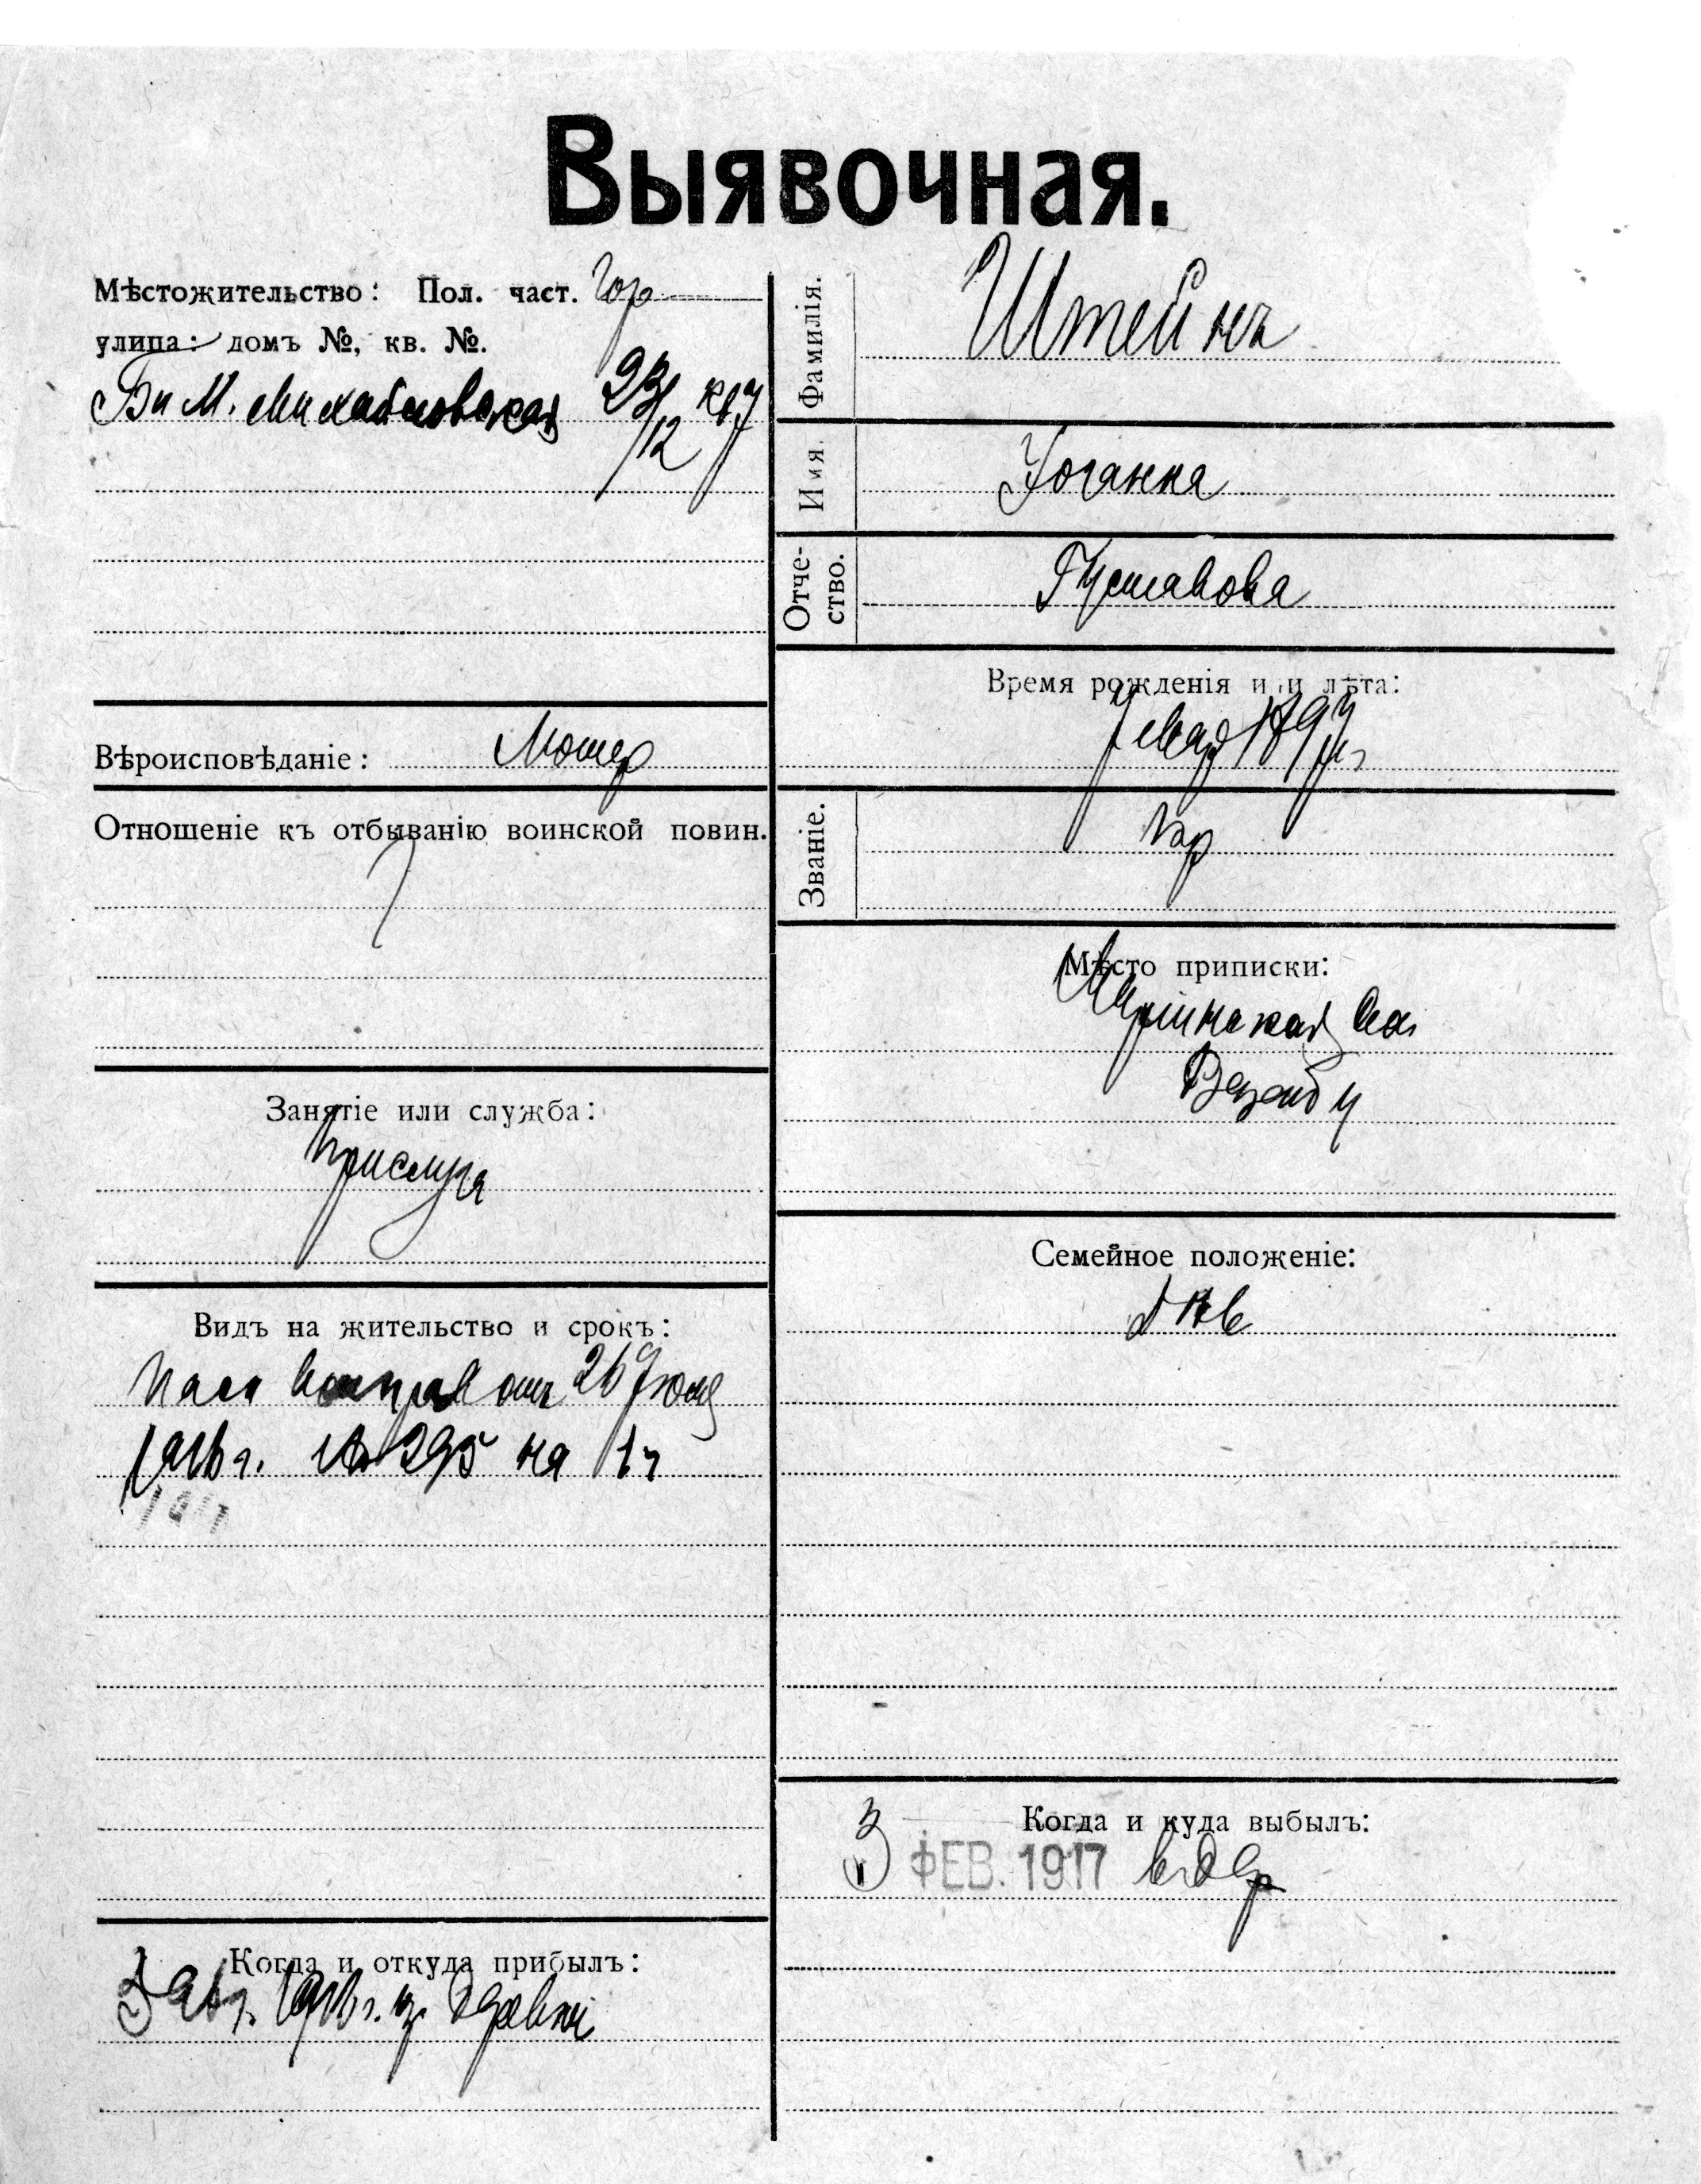 Выявочная.
Мѣстожительство: Пол. част. Гор
улица: домъ №, кв. №.
Б и М. Михайловская 23/12 кв 7
Вѣроисповѣданіе: Лютер
Отношеніе къ отбыванію воинской повин.
Занятіе или служба:
Прислуга
Видъ на жительство и срокъ:
отъ 26 Іюля
1916 г. № 295 на 1 г
Когда и откуда прибылъ:
3 Авг. 1916 г. из деревни
Фамилія.
Штейнъ
Имя.
Іоганна
Отче-
ство.
Густавова
Время рожденія или лѣта:
1897 г
Званіе.
Кр
Мѣсто приписки:
Везенб у
Семейное положеніе:
Дѣв
Когда и куда выбылъ:
3 ФЕВ. 1917 в дер